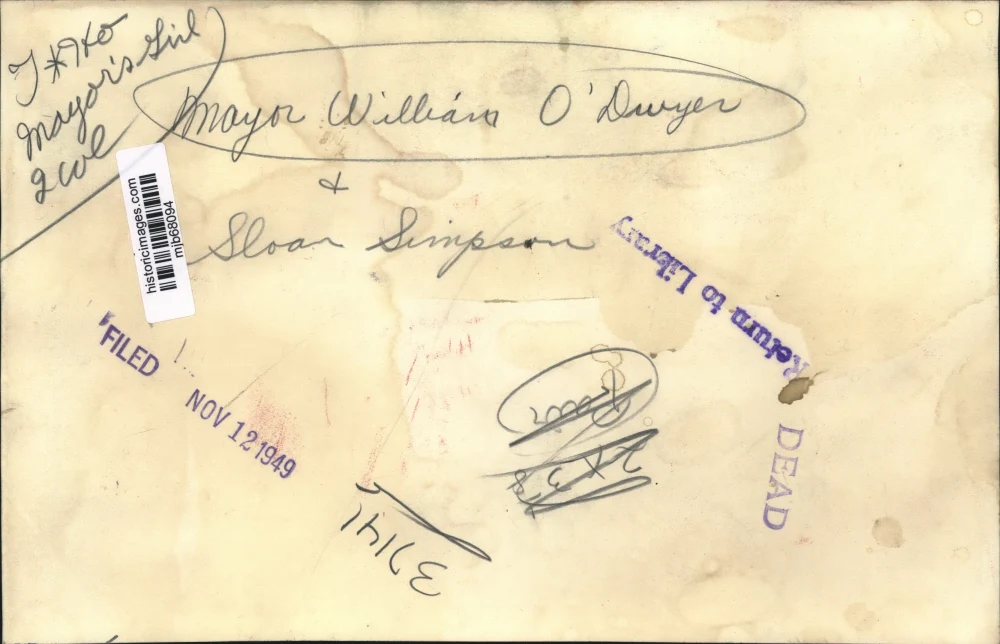 Mayor's Girl
2 col
Mayor William O'Dwyer
&
Sloan Simpson
historicimages.com
mjb68094
Return to Library
FILED
NOV 12 1949
DEAD